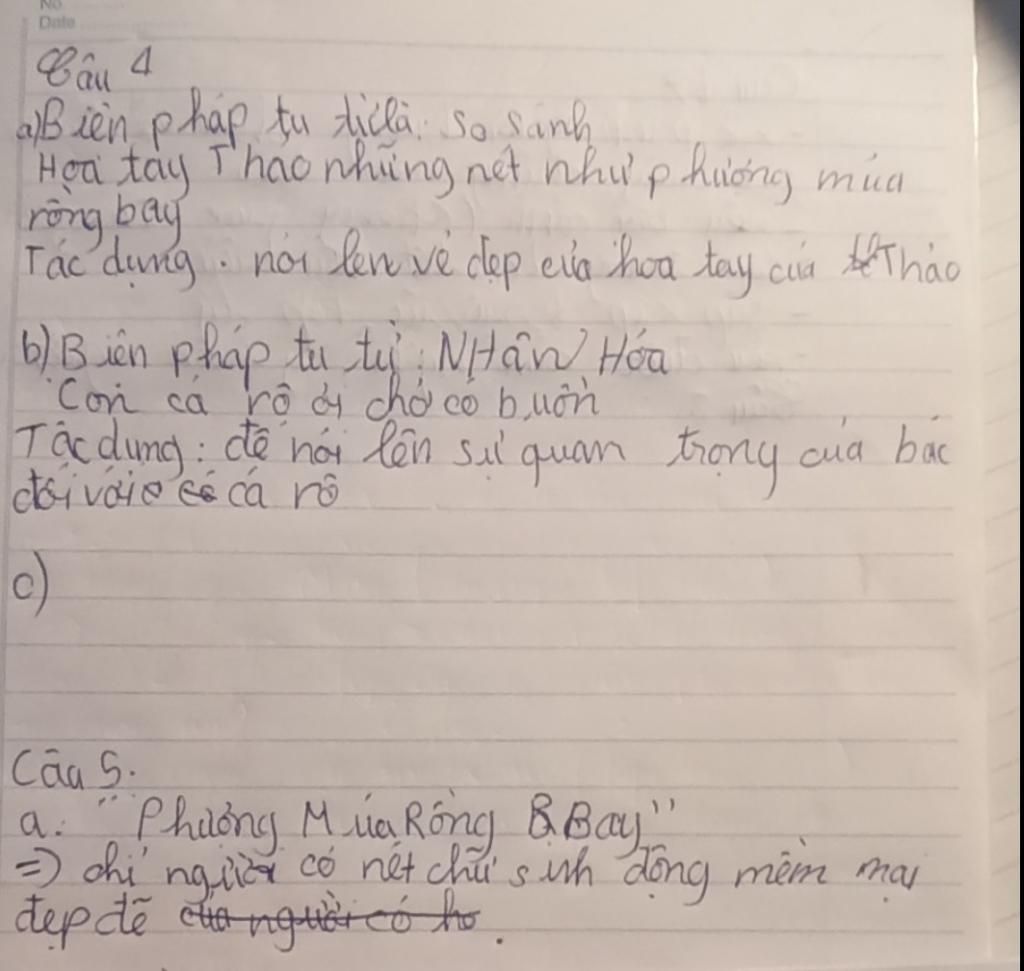 No.
Date
Câu 4
a) Biện pháp tu từ là: so sánh
Hoa tay Thảo những nét như phượng múa
rồng bay
Tác dụng: nói lên vẻ đẹp của hoa tay của Thảo
b) Biện pháp tu từ: NHân Hóa
Con cá rô ơi chớ có buồn
Tác dụng: để nói lên sự quan trọng của bác
đối với cá rô
c)
Câu 5.
a. "Phượng Múa Rồng Bay"
=> chỉ người có nét chữ sinh động mềm mại
đẹp đẽ của người có ho.